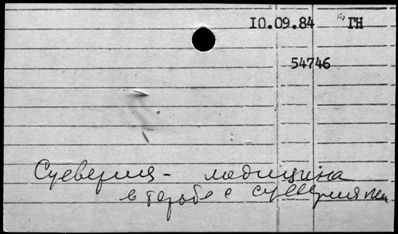 10.09.84 ГН
54746
Суеверия - медицина
в борьбе с суевериями